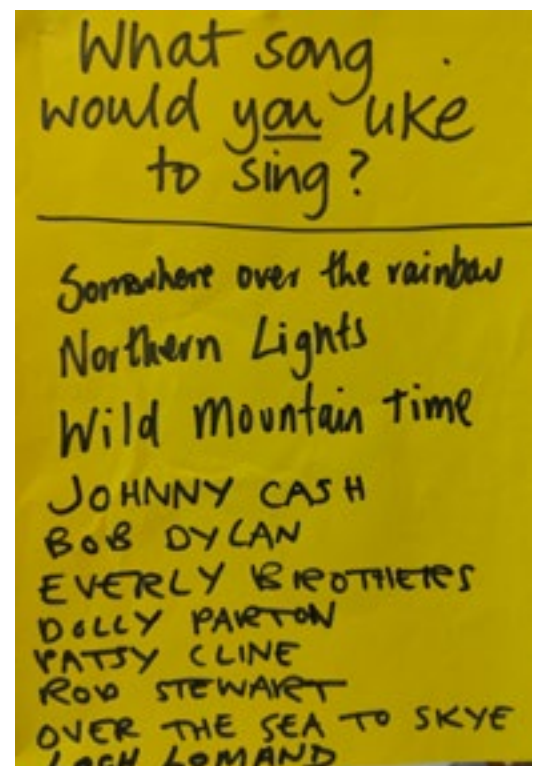 What song
would you like
to sing?
Somewhere over the rainbow
Northern Lights
Wild Mountain Time
JOHNNY CASH
BOB DYLAN
EVERLY BROTHERS
DOLLY PARTON
PATSY CLINE
ROD STEWART
OVER THE SEA TO SKYE
LOCH LOMAND